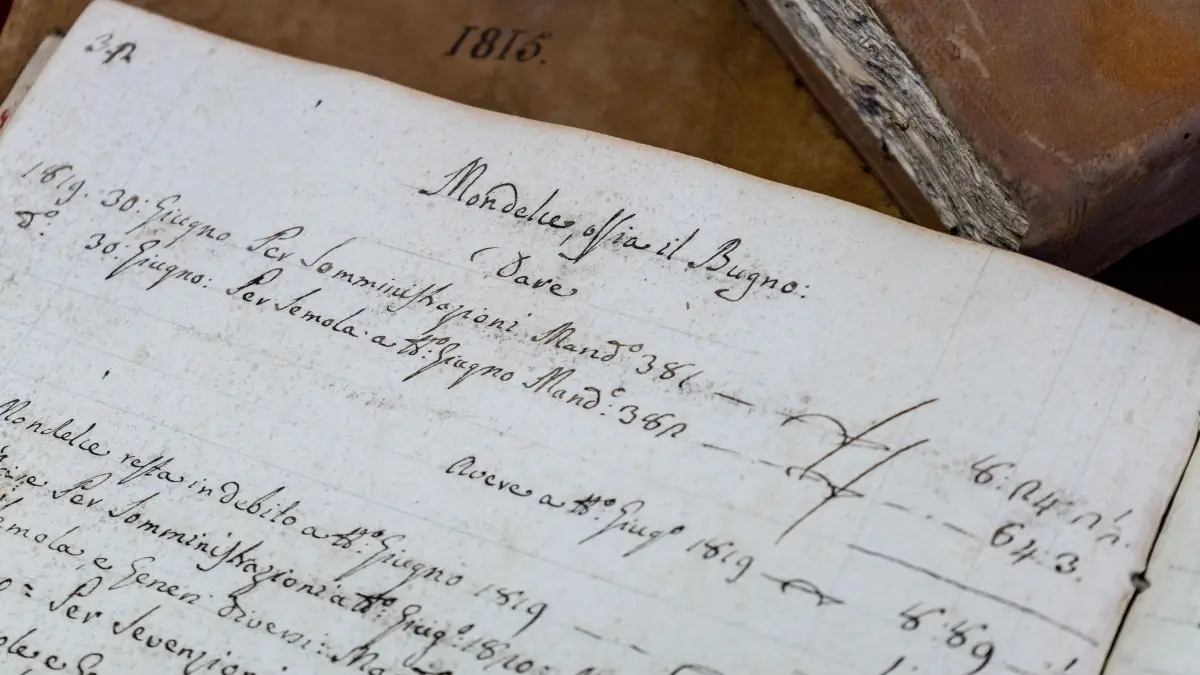 1815.
32
Mondelce, ossia il Bugno:
Dare
1819. 30: Giugno Per Somministrazioni Mand:º 381
d:º 30: Giugno: Per Semola a tt:º Giugno Mand:º 382
64:3.
Avere a tt:º Giug:º 1819
Mondelce resta in debito a tt:º Giugno 1819
Per Somministrazioni a tt:º Giug:º 1820:
Semola, e Generi diversi:
= Per Sevenzioni